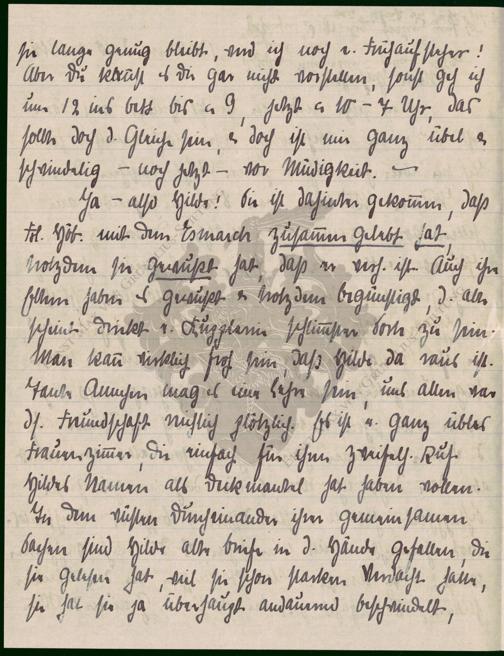 sie lange genug bleibt, und ich noch e. Frühaufsteher!
Aber Du kannst es Dir gar nicht vorstellen, sonst geh ich
um 12 ins Bett bis ca 9, jetzt ca 10 – 7 Uhr, das
sollte doch d. Gleiche sein, u doch ist mir ganz übel u
schwindelig – noch jetzt – vor Müdigkeit. —
Ja – also Hilde! Sie ist dahinter gekommen, daß
Frl. Höb. mit dem Esmarch zusammen gelebt hat,
trotzdem sie gewußt hat, daß er verh. ist. Auch ihre
Eltern haben es gewußt u trotzdem begünstigt, d. alte
scheint direkt e. Kupplerin schlimmster Sorte zu sein.
Man kann wirklich froh sein, daß Hilde da raus ist.
Tante Annchen mag es eine Lehre sein, uns allen war
ds. Freundschaft reichlich plötzlich. Es ist e. ganz übles
Frauenzimmer, die einfach für ihren zweifelh. Ruf
Hildes Namen als Deckmantel hat haben wollen.
In dem wüsten Durcheinander ihrer gemeinsamen
Sachen sind Hilde alte Briefe in d. Hände gefallen, die
sie gelesen hat, weil sie schon starken Verdacht hatte,
sie hat sie ja überhaupt andauernd beschwindelt,